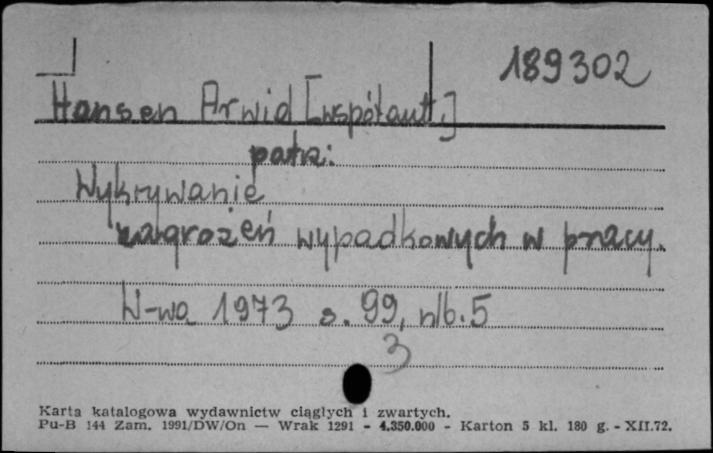 189302
Hansen Arwid [współaut.]
patrz:
Wykrywanie
zagrożeń wypadkowych w pracy.
W-wa 1973 s. 99, nlb. 5
3
Karta katalogowa wydawnictw ciągłych i zwartych.
Pu-B 144 Zam. 1991/DW/On — Wrak 1291 - 4.350.000 - Karton 5 kl. 180 g. - XII.72.